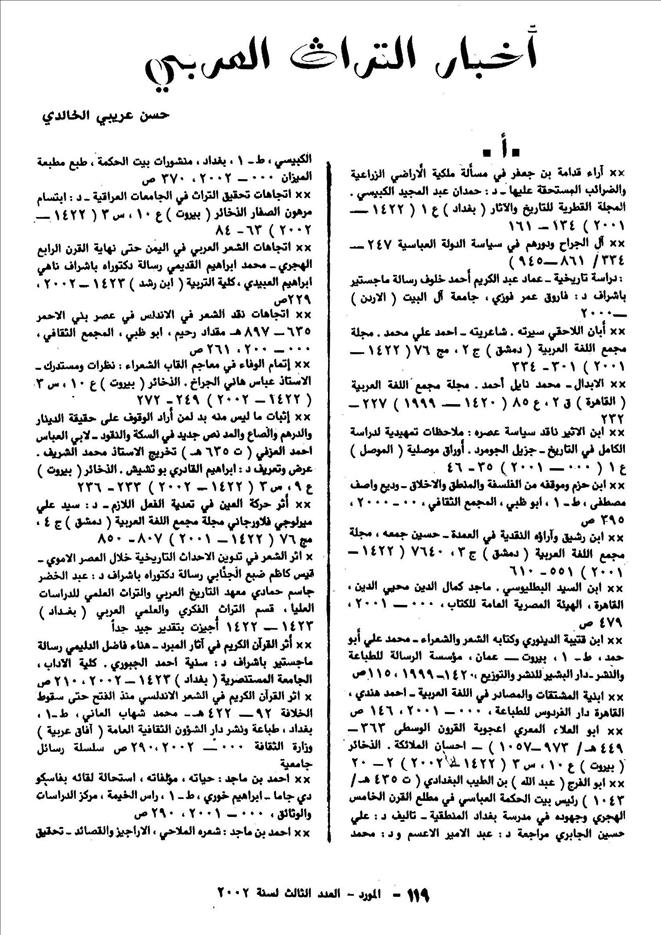 أخبار التراث العربي
حسن عريبي الخالدي
• أ •
×× آراء قدامة بن جعفر في مسألة ملكية الأراضي الزراعية
والضرائب المستحقة عليها ـ د : حمدان عبد المجيد الكبيسي .
المجلة القطرية للتاريخ والاثار ( بغداد ) ع ١ ( ١٤٢٢ ــ
٢٠٠١ ) ١٣٤ ــ ١٦١
×× آل الجراح ودورهم في سياسة الدولة العباسية ٢٤٧ ــ
٣٣٤ / ٨٦١ ــ ٩٤٥ )
: دراسة تاريخية ـ عماد عبد الكريم أحمد خلوف رسالة ماجستير
باشراف د : فاروق عمر فوزي ، جامعة آل البيت ( الاردن )
ــ ٢٠٠٠
×× أبان اللاحقي سيرته . شاعريته ـ احمد علي محمد . مجلة
مجمع اللغة العربية ( دمشق ) ج ٢ ، مج ٧٦ ( ١٤٢٢ ــ
٢٠٠١ ) ٣٠١ ــ ٣٣٤
×× الابدال ـ محمد نايل أحمد . مجلة مجمع اللغة العربية
( القاهرة ) ق ٢ ، ع ٨٥ ( ١٤٢٠ ــ ١٩٩٩ ) ٢٢٧ ــ
٢٣٢
×× ابن الاثير ناقد سياسة عصره : ملاحظات تمهيدية لدراسة
الكامل في التاريخ ـ جزيل الجومرد . أوراق موصلية ( الموصل )
ع ١ ( ٠٠٠ ــ ٢٠٠١ ) ٣٥ ـ ٤٦
×× ابن حزم وموقفه من الفلسفة والمنطق والاخلاق ـ وديع واصف
مصطفى ، ط ـ ١ ، ابو ظبي ، المجمع الثقافي ، ٠٠ ــ ٢٠٠٠ ،
٣٩٥ ص
×× ابن رشيق وآراؤه النقدية في العمدة ـ حسين جمعه ، مجلة
مجمع اللغة العربية ( دمشق ) ج ٣ ، ٧٦٤٠ ( ١٤٢٢ ــ
٢٠٠١ ) ٥٥١ ــ ٦١٠
×× ابن السيد البطليوسي . ماجد كمال الدين محيي الدين ،
القاهرة ، الهيئة المصرية العامة للكتاب ، ٠٠٠ ــ ٢٠٠١ ،
٤٧٩ ص
×× ابن قتيبة الدينوري وكتابه الشعر والشعراء ـ محمد علي أبو
حمد ، ط ـ ١ ، بيروت ــ عمان ، مؤسسة الرسالة للطباعة
والنشر ـ دار البشير للنشر والتوزيع ، ١٤٢٠ ــ ١٩٩٩ ، ١١٥ ص
×× ابنية المشتقات والمصادر في اللغة العربية ـ احمد هندي ،
القاهرة دار الفردوس للطباعة ، ٠٠٠ ــ ٢٠٠١ ، ١٤٦ ص
×× ابو العلاء المعري اعجوبة القرون الوسطى ٣٦٣ ــ
٤٤٩ هـ / ٩٧٣ ــ ١٠٥٧ ) ــ احسان الملائكة . الذخائر
( بيروت ) ع ١٠ ، س ٣ ( ١٤٢٢ ــ ٢٠٠٢ ) ٢ ــ ٢٠
×× ابو الفرج ( عبد الله ) بن الطيب البغدادي ( ت ٤٣٥ هـ /
١٠٤٣ ) رئيس بيت الحكمة العباسي في مطلع القرن الخامس
الهجري وجهوده في مدرسة بغداد المنطقية ـ تاليف د : علي
حسين الجابري مراجعة د : عبد الامير الاعسم و د : محمد
الكبيسي ، ط ـ ١ ، بغداد ، منشورات بيت الحكمة ، طبع مطبعة
الميزان ٠٠٠ ــ ٢٠٠٢ ، ٣٧٠ ص
×× اتجاهات تحقيق التراث في الجامعات العراقية ـ د : ابتسام
مرهون الصفار الذخائر ( بيروت ) ع ١٠ ، س ٣ ( ١٤٢٢ ــ
٢٠٠٢ ) ٦٣ ـ ٨٤
×× اتجاهات الشعر العربي في اليمن حتى نهاية القرن الرابع
الهجري ـ محمد ابراهيم القديمي رسالة دكتوراه باشراف ناهي
ابراهيم العبيدي ، كلية التربية ( ابن رشد ) ١٤٢٣ ــ ٢٠٠٢ ،
٢٢٩ ص
×× اتجاهات نقد الشعر في الاندلس في عصر بني الاحمر
٦٣٥ ــ ٨٩٧ هـ مقداد رحيم ، ابو ظبي ، المجمع الثقافي ،
٠٠٠ ــ ٢٠٠ ، ٢٦١ ص
×× إتمام الوفاء في معاجم القاب الشعراء : نظرات ومستدرك ـ
الاستاذ عباس هاني الجراخ . الذخائر ( بيروت ) ع ١٠ ، س ٣
( ١٤٢٢ ــ ٢٠٠٢ ) ٢٤٩ ــ ٢٧٢
×× إثبات ما ليس منه بد لمن أراد الوقوف على حقيقة الدينار
والدرهم والصاع والمد نص جديد في السكة والنقود ـ لابي العباس
احمد العزفي ( ت ٦٣٥ هـ ) تخريج الاستاذ محمد الشريف .
عرض وتعريف د : ابراهيم القادري بو تشيش . الذخائر ( بيروت )
ع ٩ ، س ٣ ( ١٤٢٢ ــ ٢٠٠٢ ) ٢٣٣ ــ ٢٣٦
×× أثر حركة العين في تعدية الفعل اللازم ـ د : سيد علي
ميرلوجي فلاورجاني مجلة مجمع اللغة العربية ( دمشق ) ج ٤ ،
مج ٧٦ ( ١٤٢٢ ــ ٢٠٠١ ) ٨٠٧ ـ ٨٥٠
× اثر الشعر في تدوين الاحداث التاريخية خلال العصر الاموي ـ
قيس كاظم ضبع الجنابي رسالة دكتوراه باشراف د : عبد الخضر
جاسم حمادي معهد التاريخ العربي والتراث العلمي للدراسات
العليا ، قسم التراث الفكري والعلمي العربي ( بغداد )
١٤٢٣ ــ ١٤٢٢ أجيزت بتقدير جيد جداً
×× أثر القرآن الكريم في آثار المبرد ـ هناء فاضل الدليمي رسالة
ماجستير باشراف د : سنية احمد الجبوري . كلية الاداب ،
الجامعة المستنصرية ( بغداد ) ١٤٢٣ ــ ٢٠٠٢ ، ٢١٠ ص
× اثر القرآن الكريم في الشعر الاندلسي منذ الفتح حتى سقوط
الخلافة ٩٢ ــ ٤٢٢ هـ ــ محمد شهاب العاني ، ط ـ ١ ،
بغداد ، طباعة ونشر دار الشؤون الثقافية العامة ( آفاق عربية )
وزارة الثقافة ٠٠٠ ــ ٢٠٠٢ ، ٢٩٠ ص سلسلة رسائل
جامعية
×× احمد بن ماجد : حياته ، مؤلفاته ، استحالة لقائه بفاسكو
دي جاما ـ ابراهيم خوري ، ط ـ ١ ، راس الخيمة ، مركز الدراسات
والوثائق ، ٠٠٠ ــ ٢٠٠١ ، ٢٩٠ ص
×× احمد بن ماجد : شعره الملاحي ، الاراجيز والقصائد ـ تحقيق
١١٩ ـ المورد ـ العدد الثالث لسنة ٢٠٠٢